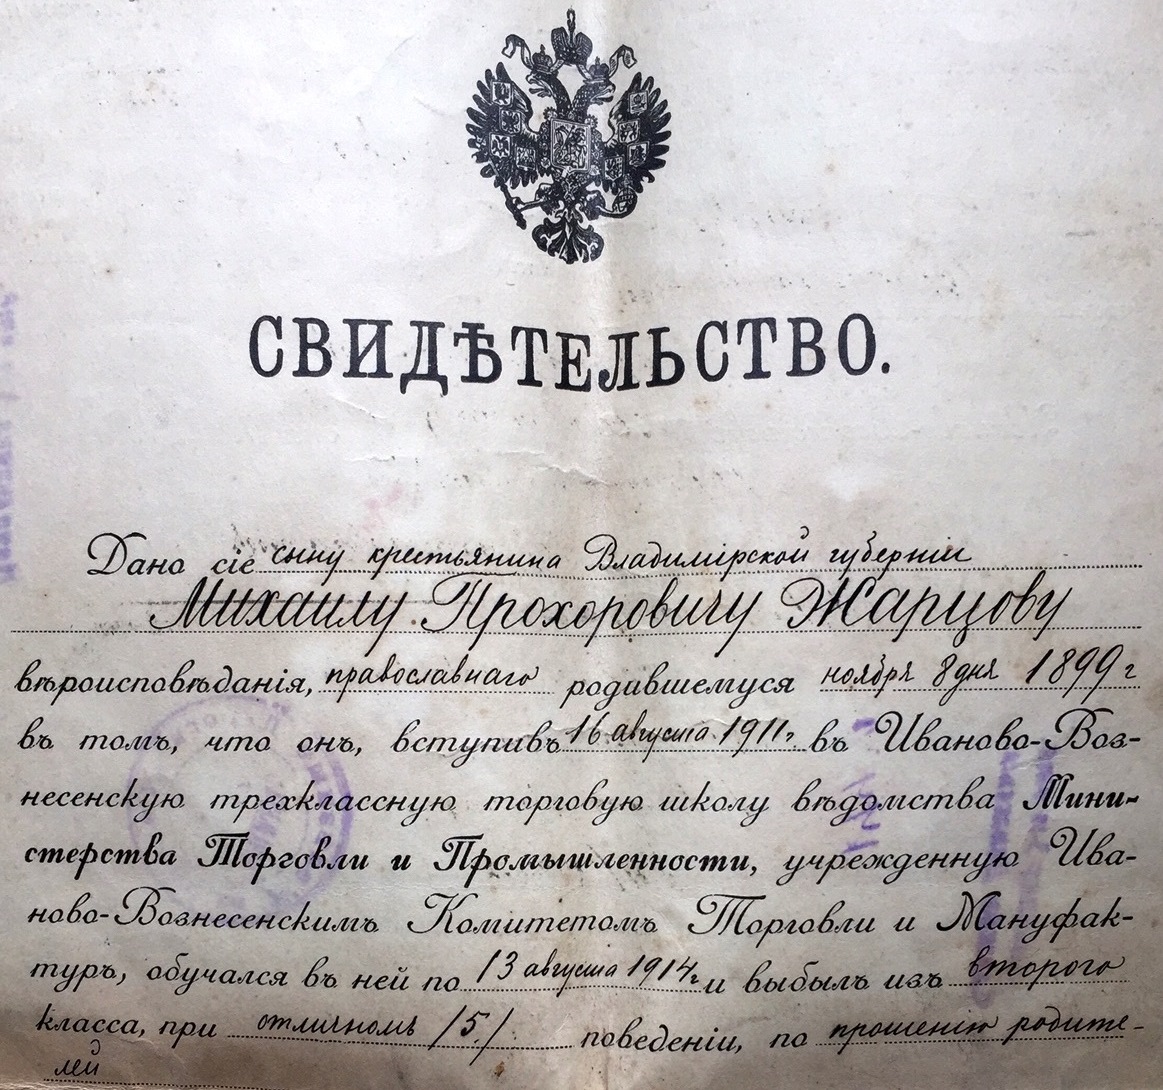 СВИДѢТЕЛЬСТВО.
Дано сіе сыну крестьянина Владимірской губерніи
Михаилу Прохоровичу Жарцову
вѣроисповѣданія, православнаго родившемуся ноября 8 дня 1899 г
въ томъ, что онъ, вступивъ 16 августа 1911 г. въ Иваново-Воз-
несенскую трехклассную торговую школу вѣдомства Мини-
стерства Торговли и Промышленности, учрежденную Ива-
ново-Вознесенскимъ Комитетомъ Торговли и Мануфак-
туръ, обучался въ ней по 13 августа 1914 г. и выбылъ изъ второго
класса, при отличномъ /5/ поведеніи, по прошенію родите-
лей